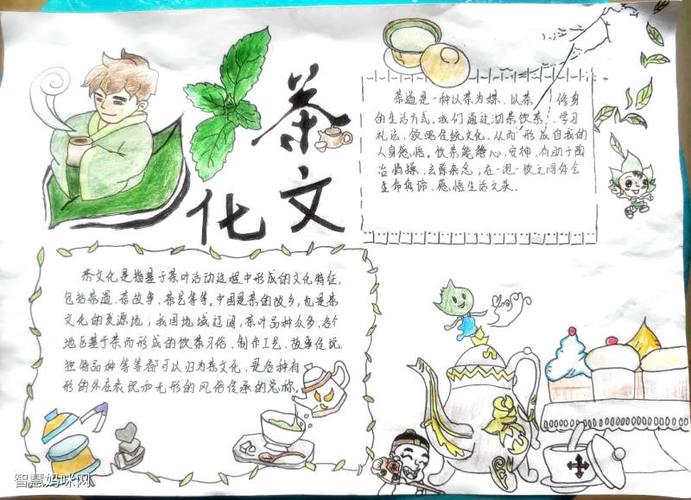 茶文化
茶道是一种以茶为媒，以茶修身
的生活方式。我们通过沏茶饮茶，学习
礼法，领略传统文化，从而形成自我的
人身感悟。饮茶能静心，安神，有助于陶
冶情操，去除杂念；在一泡一饮之间体会
感悟生活之美。
茶文化是指基于茶叶活动过程中形成的文化特征，
包括茶道、茶故事、茶艺等等。中国是茶的故乡，也是茶
文化的发源地；我国地域辽阔，茶叶品种众多，各个
地区基于茶而形成的饮茶习俗，制作工艺，故事传说
独特品种等等都可以归为茶文化，是各种有
形的外在表现和无形的风俗传承的总称。
智慧妈咪网